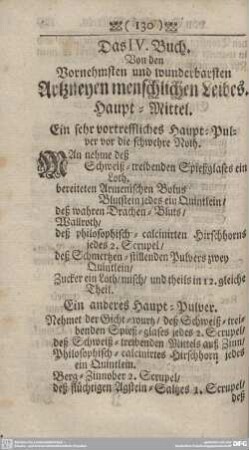 ( 130 )
Das IV. Buch.
Von den
Vornehmsten und wunderbarsten
Artzneyen menschlichen Leibes.
Haupt-Mittel.
Ein sehr vortreffliches Haupt-Pul-
ver vor die schwehre Noth.
MAn nehme deß
Schweiß-treibenden Spießglases ein
Loth,
bereiteten Armenischen Bolus
Blutstein jedes ein Quintlein/
deß wahren Drachen-Bluts/
Wallroth/
deß philosophisch-calcinirten Hirschhorns
jedes 2. Scrupel/
deß Schmertzen-stillenden Pulvers zwey
Quintlein/
Zucker ein Loth/misch/ und theils in 12. gleiche
Theil.
Ein anderes Haupt-Pulver.
Nehmet der Gicht-wurtz/ deß Schweiß-trei-
benden Spieß-glases jedes 2. Scrupel/
deß Schweiß-treibenden Mittels auß Zinn/
Philosophisch-calcinirtes Hirschhorn jedes
ein Quintlein.
Berg-Zinnober 2. Scrupel/
deß flüchtigen Agstein-Saltzes 1. Scrupel/
deß